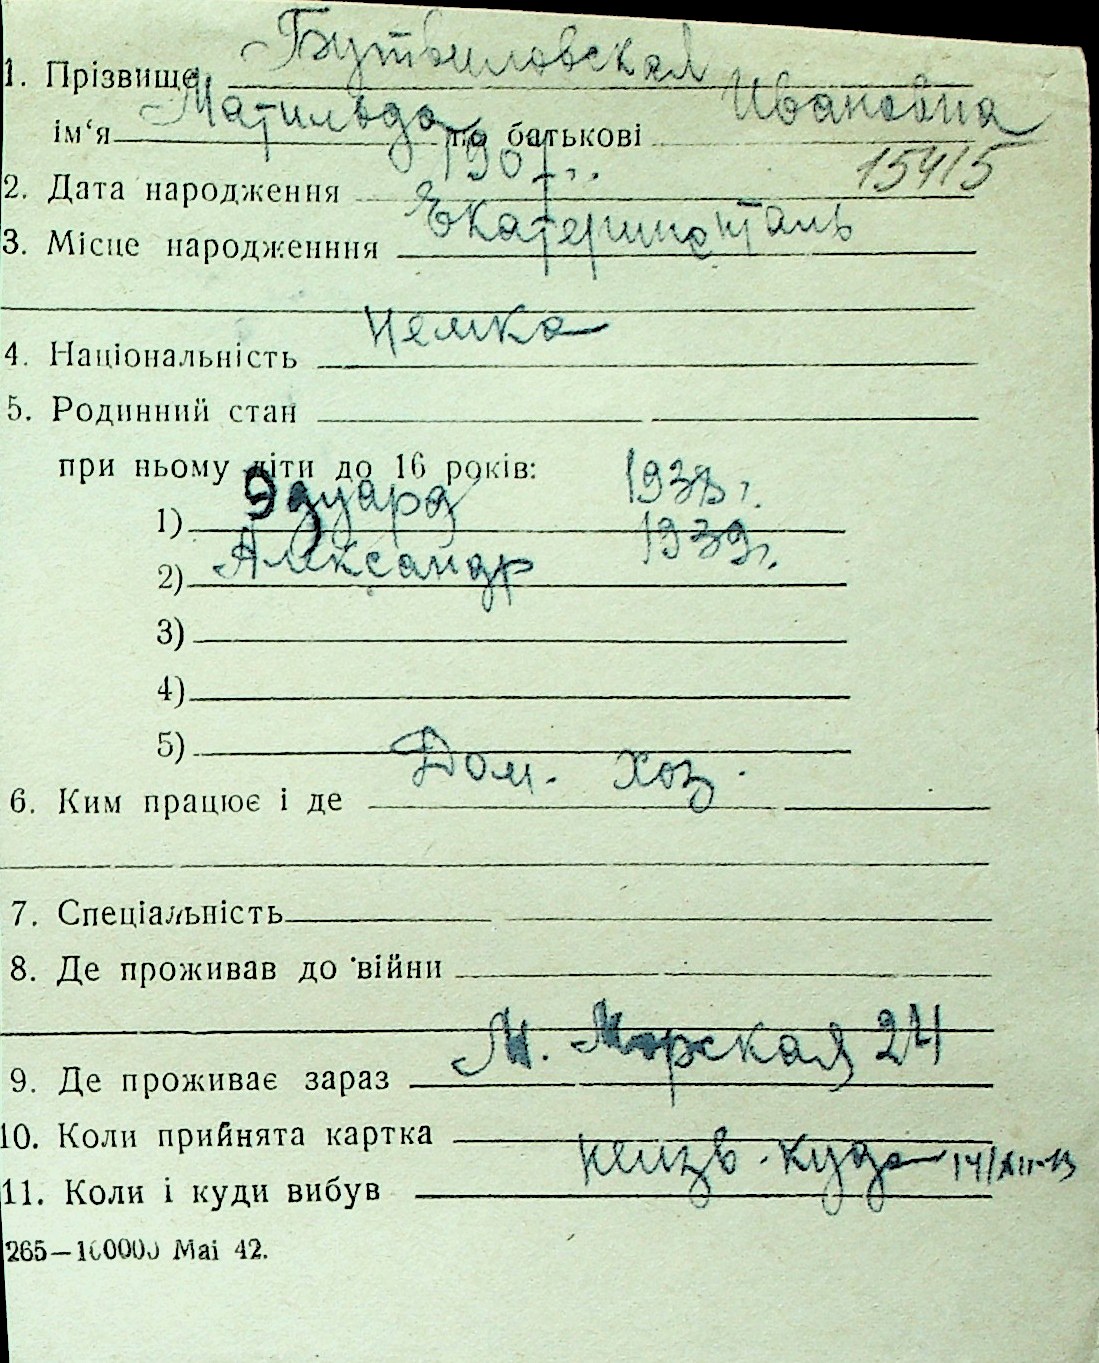 1. Прізвище Бутвиловская
ім'я Матильда по батькові Ивановна
15415
2. Дата народження 1901 г.
3. Місце народженння Екатериненталь
4. Національність Немка
5. Родинний стан
при ньому діти до 16 років:
1) Эдуард 1938 г.
2) Александр 1939 г.
3)
4)
5)
6. Ким працює і де Дом. хоз.
7. Спеціальність
8. Де проживав до війни
9. Де проживає зараз М. Морская 24
10. Коли прийнята картка
11. Коли і куди вибув неизв. куда 14/XII-43
265—100000 Mai 42.